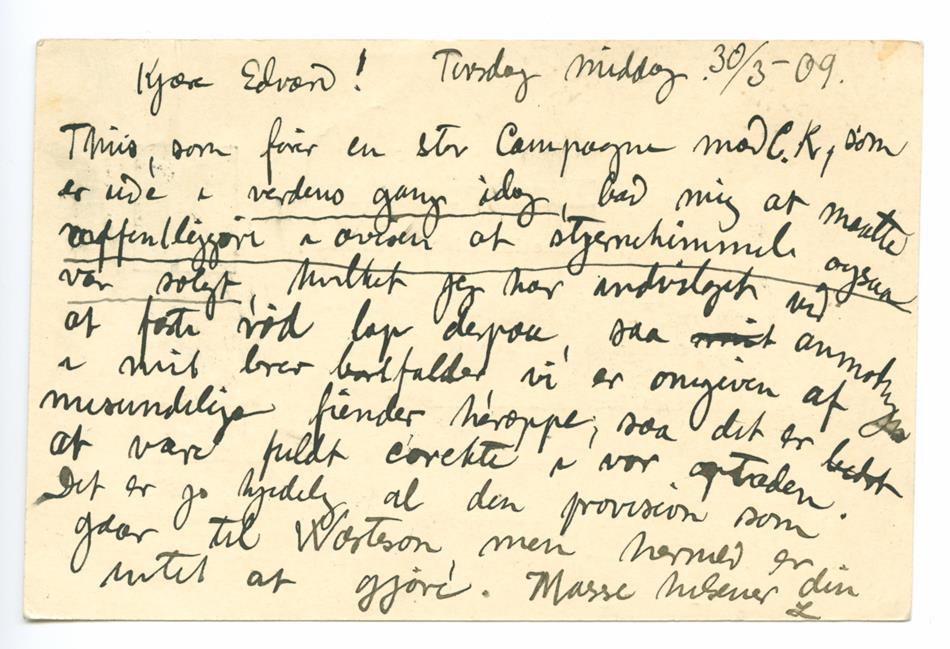 Kjære Edvard! Tirsdag middag 30/3-09.
Thiis, som fører en stor Campagne mod C.K, som
er ude i verdens gang idag, bad mig at maatte
offentliggjøre i avisen at stjernehimmelen ogsaa
var solgt, hvilket jeg har indvilget ved
at fæste rød lap derpaa, saa anmodningen
i mit brev bortfalder, vi er omgiven af
misundelige fiender heroppe, saa det er bedst
at være fuldt corekte i vor optræden.
Det er jo kjedelig al den provision som
gaar til Warteson, men hermed er
intet at gjøre. Masse hilsener din
L